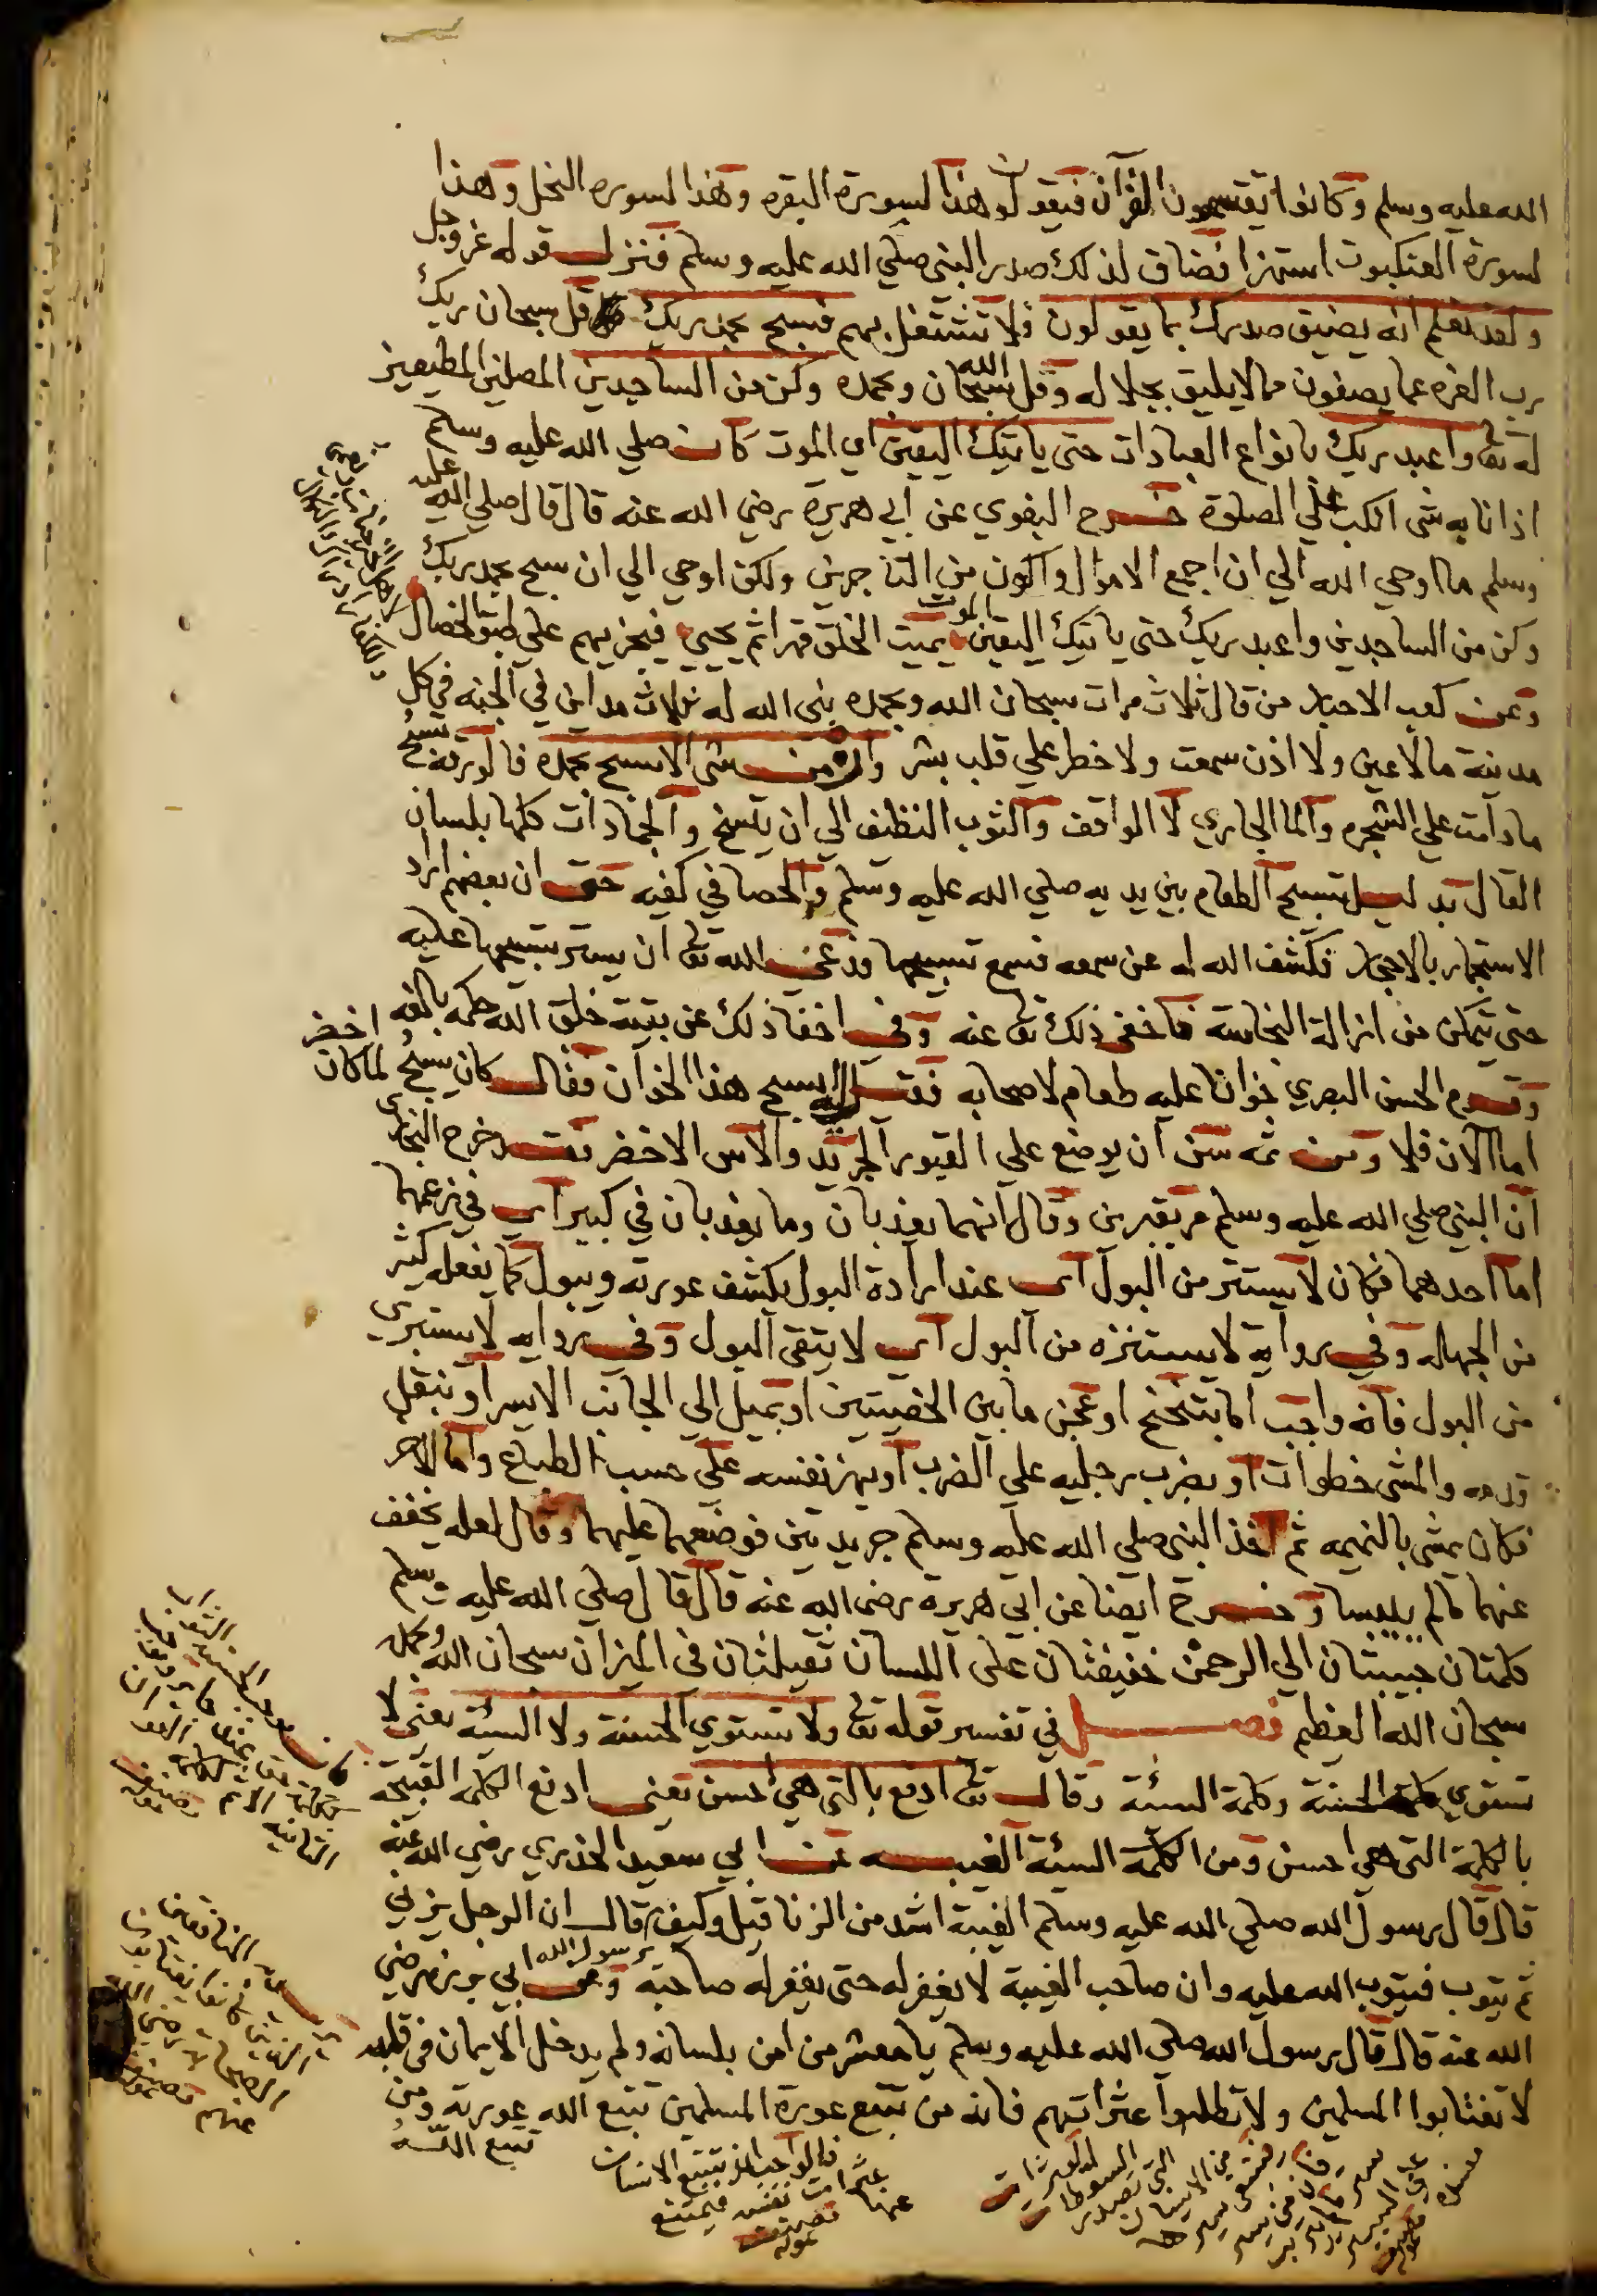 الله عليه وسلم وكانوا يقتسمون القرآن فيقولون هذا لسورة البقره وهذا لسوره النحل وهذا
لسورة العنكبوت استهزا فضاق لذلك صدر النبي صلي الله عليه وسلم فنزل قوله عز وجل
ولقد نعلم انه يضيق صدرك بما يقولون فلا تشتغل بهم فسبح بحمد ربك قل سبحان ربك
رب العزه عما يصفون مما لا يليق بجلاله وقل سبحان الله وبحمده وكن من الساجدين المصلين المطيعين
له تعا واعبد ربك بانواع العبادات حتى ياتيك اليقين اي الموت كان صلي الله عليه وسلم
اذا نابه شى انكب علي الصلوة خرج البغوي عن ابي هريرة رضي الله عنه قال قال صلي الله عليه
وسلم ما اوحي الله الي ان اجمع الاموال واكون من التاجرين ولكن اوحي الي ان سبح بحمد ربك
وكن من الساجدين واعبد ربك حتى ياتيك اليقين الموت يميت الخلق قهرا ثم يحيي فيجزيهم علي طبق الخصال
وعن كعب الاحبار من قال ثلاث مرات سبحان الله وبحمده بنى الله له ثلاث مداين في الجنه في كل
مدينة مالا عين ولا اذن سمعت ولا خطر علي قلب بشر وان من شى الا يسبح بحمده فالورقه تسبح
مادامت علي الشجره والما الجاري لا الواقف والثوب النظيف الي ان يتسخ والجمادات كلها بلسان
القال بدليل تسبيح الطعام بين يديه صلي الله عليه وسلم والحصا في كفيه حتى ان بعضهم اراد
الاستجمار بالاحجار فكشف الله له عن سمعه فسمع تسبيحها فدعى الله تعا ان يستر تسبيحها عليه
حتى يتمكن من ازالة النجاسة فاخفى ذلك تعا عنه وفى اخفا ذلك عن بقية خلق الله حكمه بالغه
وقدم الحسن البصري خوانا عليه طعام لاصحابه فقيل له ايسبح هذا الخوان فقال كان يسبح لما كان اخضر
اما الآن فلا ومن ثمه سن ان يوضع علي القبور الجريد والآس الاخضر فقد خرج البخارى
ان النبي صلي الله عليه وسلم مر بقبرين وقال انهما يعذبان وما يعذبان في كبير اي في زعمهما
اما احدهما فكان لا يستتر من البول اى عند ارادة البول يكشف عورته ويبول كما يفعله كثير
من الجهاله وفي رواية لا يستنزه من البول اى لا يتقى البول وفى روايه لا يستبري
من البول فانه واجب اما بتنحنح او عجن ما بين الخصيتين او بميل الي الجانب الايسر او بنقل
قدمه والمشى خطوات او بضرب رجليه علي الضرب او يهز نفسه علي حسب الطباع واما الاخر
فكان يمشى بالنميمه ثم اخذ النبي صلي الله عليه وسلم جريدتين فوضعهما عليهما وقال لعله يخفف
عنهما مالم ييبسا وخرج ايضا عن ابي هريرة رضى الله عنه قال قال صلي الله عليه وسلم
كلمتان حبيبتان الي الرحمن خفيفتان على اللسان ثقيلتان فى الميزان سبحان الله وبحمده
سبحان الله العظيم فصل في تفسير قوله تعا ولا تستوي الحسنة ولا السيئة يعني لا
تستوي كلمة الحسنة وكلمة السيئة وقال تعا ادفع بالتى هى احسن يعنى ادفع الكلمه القبيحة
بالكلمة التى هى احسن ومن الكلمة السيئة الغيبه عن ابي سعيد الخذري رضي الله عنه
قال قال رسول الله صلي الله عليه وسلم الغيبة اشد من الزنا قيل وكيف يرسول الله قال ان الرجل يزني
ثم يتوب فيتوب الله عليه وان صاحب الغيبة لا يغفر له حتى يغفر له صاحبه وعن ابي برزه رضي
الله عنه قال قال رسول الله صلي الله عليه وسلم يا معشر من امن بلسانه ولم يدخل الايمان فى قلبه
لا تغتابوا المسلمين ولا تطلبوا عثراتهم فانه من تتبع عورة المسلمين تتبع الله عورته ومن
تتبع الله
فالواجب ان يتتبع الانسان
عثرات نفسه فيمتنع
عنها